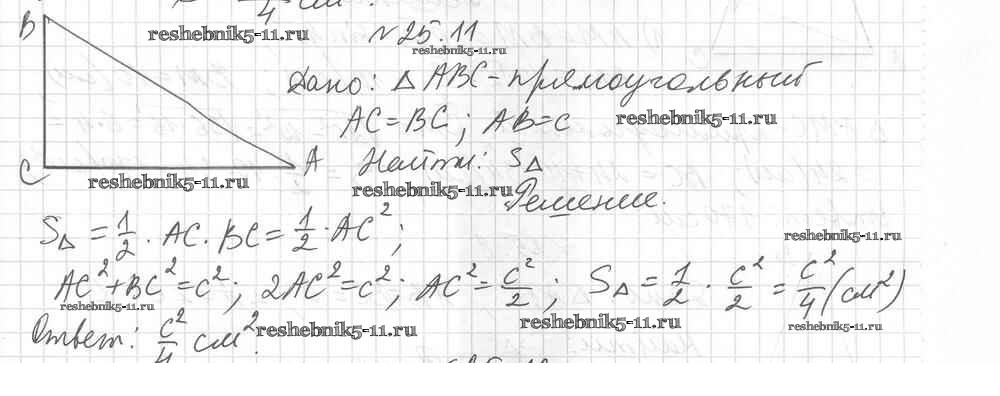 4 см².
B
reshebnik5-11.ru
№ 25.11
reshebnik5-11.ru
Дано: △ ABC - прямоугольный
AC = BC; AB = c
reshebnik5-11.ru
C
A
Найти: S△
reshebnik5-11.ru
reshebnik5-11.ru
Решение.
S△ = 1/2 · AC · BC = 1/2 · AC²;
reshebnik5-11.ru
AC² + BC² = c²; 2AC² = c²; AC² = c²/2; S△ = 1/2 · c²/2 = c²/4 (см²)
reshebnik5-11.ru
Ответ: c²/4 см².
reshebnik5-11.ru
reshebnik5-11.ru
reshebnik5-11.ru